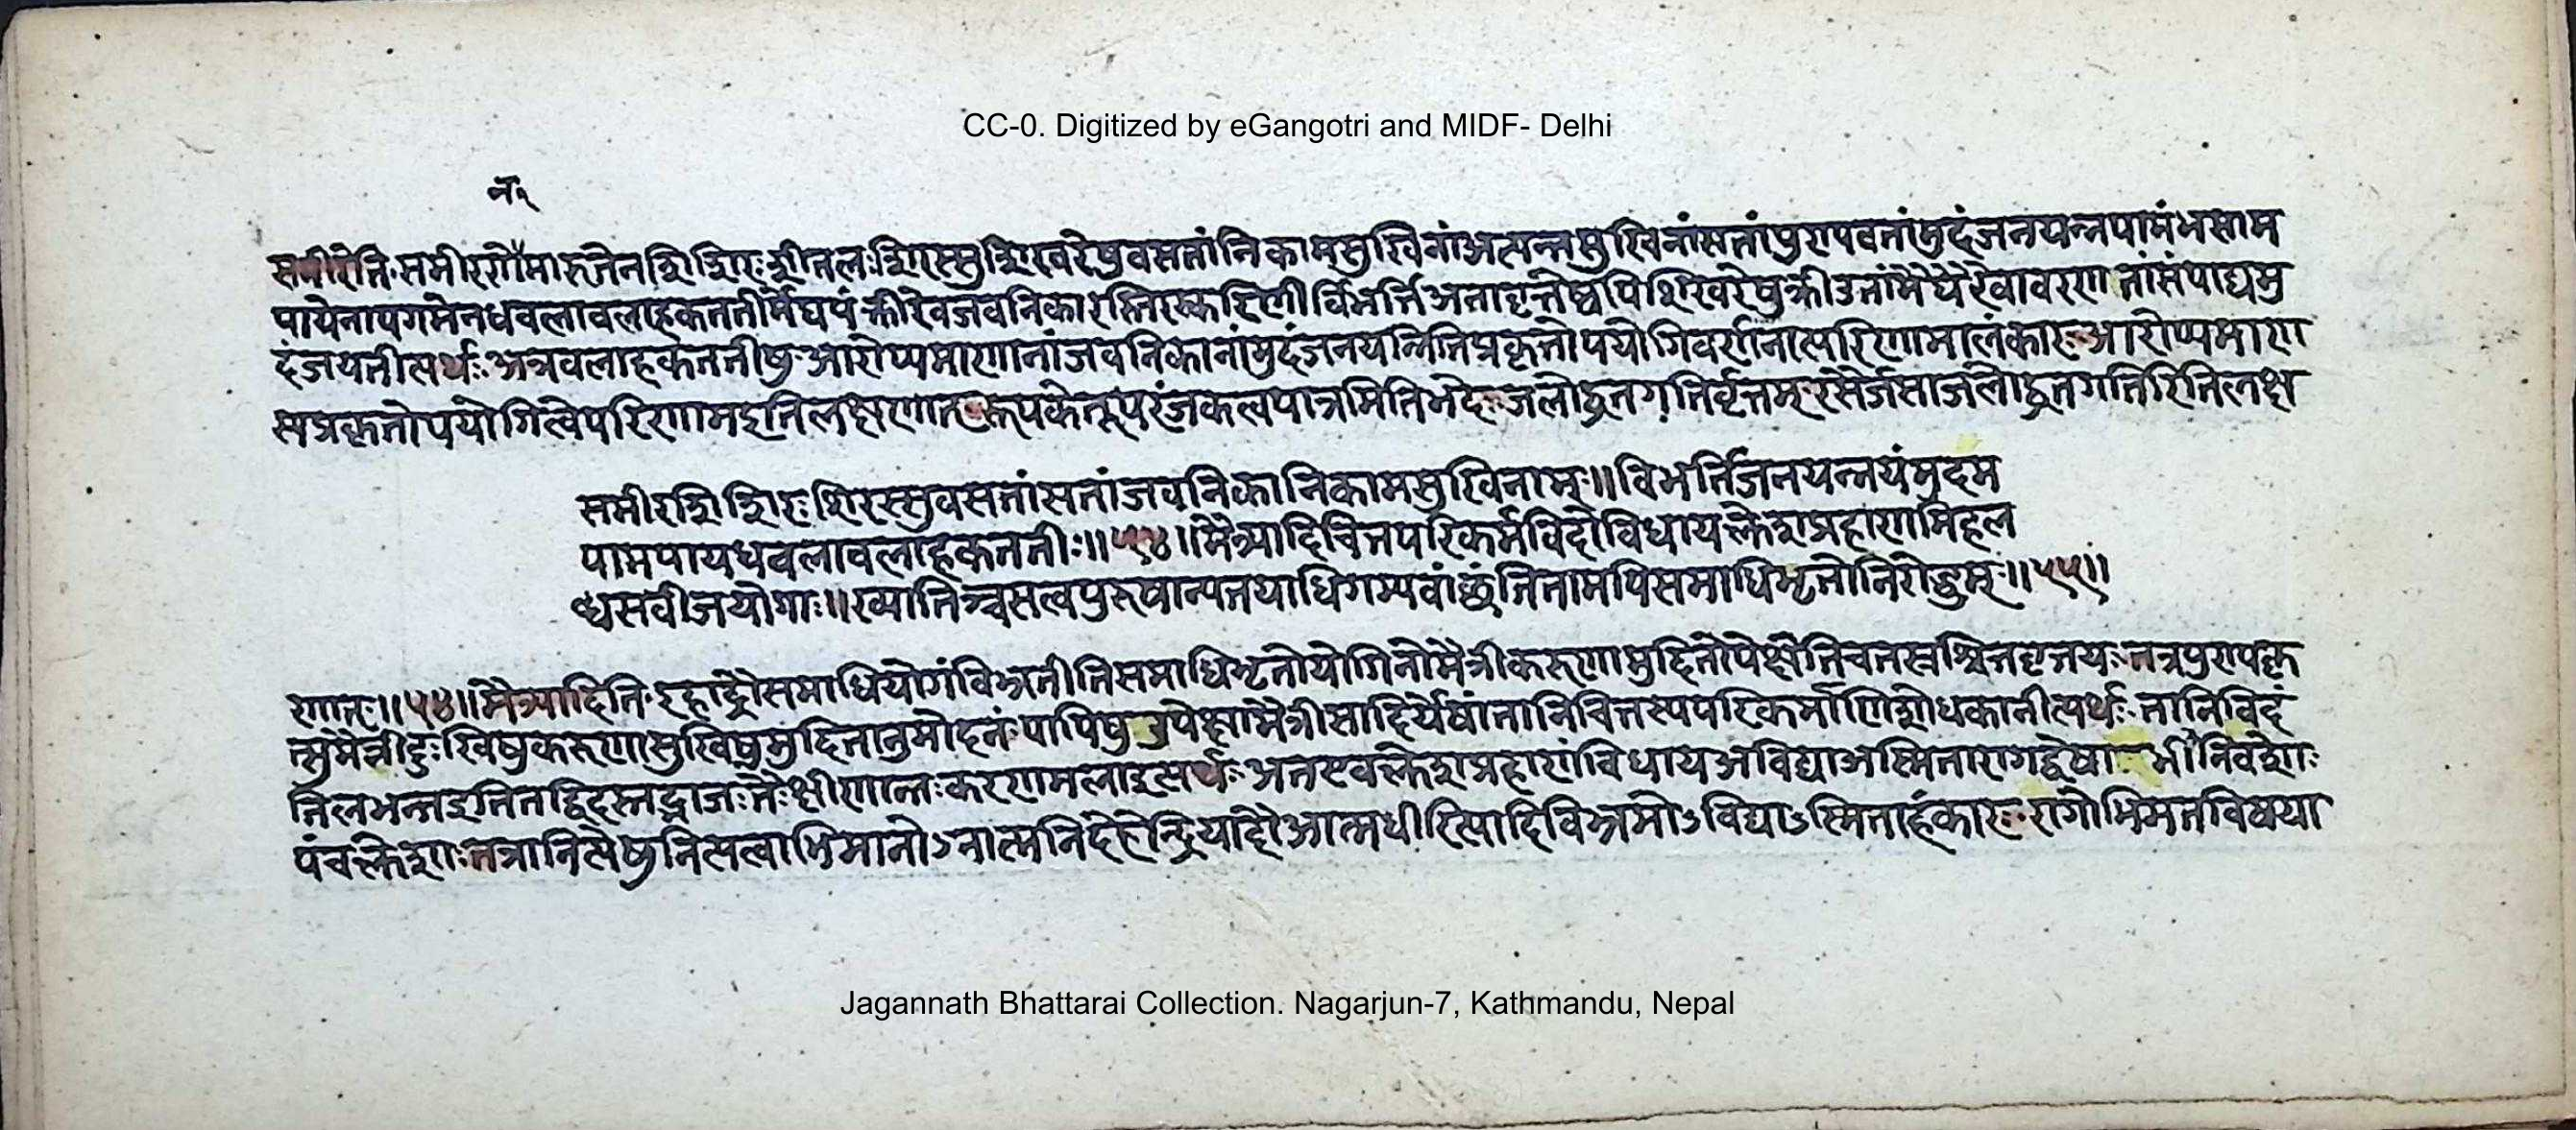 CC-0. Digitized by eGangotri and MIDF- Delhi
समीरेति समीररोमारुतेनशिशिरःशीतलःशिरस्सुशिखरेषुवसतांनिकामसुखिनांअत्यन्तसुखिनांसतांपुरापवतांमुदंजनयन्नपामंभसाम
पायेनापगमेनधवलावलाहकततीर्मेघपंक्तीरेवजवनिकास्तिरस्करिणीर्विभर्त्तिअनावृत्तेष्वपिशिखरेषुक्रीडतांमेघैरेवावरणतांसंपाद्यमु
दंजयतीत्यर्थः अत्रवलाहकततीषुआरोप्यमाणानांजवनिकानांमुदंजनयन्नितिप्रकृतोपयोगिवर्णनात्परिणामालंकारः आरोप्यमाण
स्यप्रकृतोपयोगित्वेपरिणामइतिलक्षणात् रूपकेतूपरंजकत्वमात्रमितिभेदः जलोद्धतगतिर्वृत्तम् रसैर्जसाजलोद्धतगतिरितिलक्ष
समीरशिशिरः शिरस्सुवसतांसतांजवनिकानिकामसुखिनाम्॥विभर्तिजनयन्नयंमुदम
पामपायधवलावलाहकततीः॥५४॥मैत्र्यादिचित्तपरिकर्मविदोविधायक्लेशप्रहाणमिहल
ब्धसवीजयोगाः॥ख्यातिञ्चसत्वपुरुषान्यतयाधिगम्यवांछंतितामपिसमाधिभृतोनिरोद्धुम्॥५५॥
णात्॥५४॥मैत्र्यादिति इहाद्रौसमाधियोगंविभ्रतीतिसमाधिभृतोयोगिनोमैत्रीकरुणामुदितोपेक्षेतिचतस्रश्चित्तवृत्तयः तत्रपुण्यकृ
त्सुमैत्रीदुःखिषुकरुणासुखिषुमुदितानुमोदनंपापिषुउपेक्षामैत्रीसादिर्येषांतानिचित्तस्यपरिकर्माणिशोधकानीत्यर्थः तानिविदं
तिलभन्तइतितद्विदस्तद्भाजःतैःक्षीणान्तःकरणमलाइत्यर्थः अतएवक्लेशप्रहाणंविधायअविद्याअस्मितारागद्वेषाभिनिवेशाः
पंचक्लेशाः तत्रानित्येषुनित्यत्वाभिमानोऽनात्मनिदेहेन्द्रियादौआत्मधीरित्यादिविभ्रमोऽविद्याऽस्मिताहंकारः रागोभिमतविषया
Jagannath Bhattarai Collection. Nagarjun-7, Kathmandu, Nepal